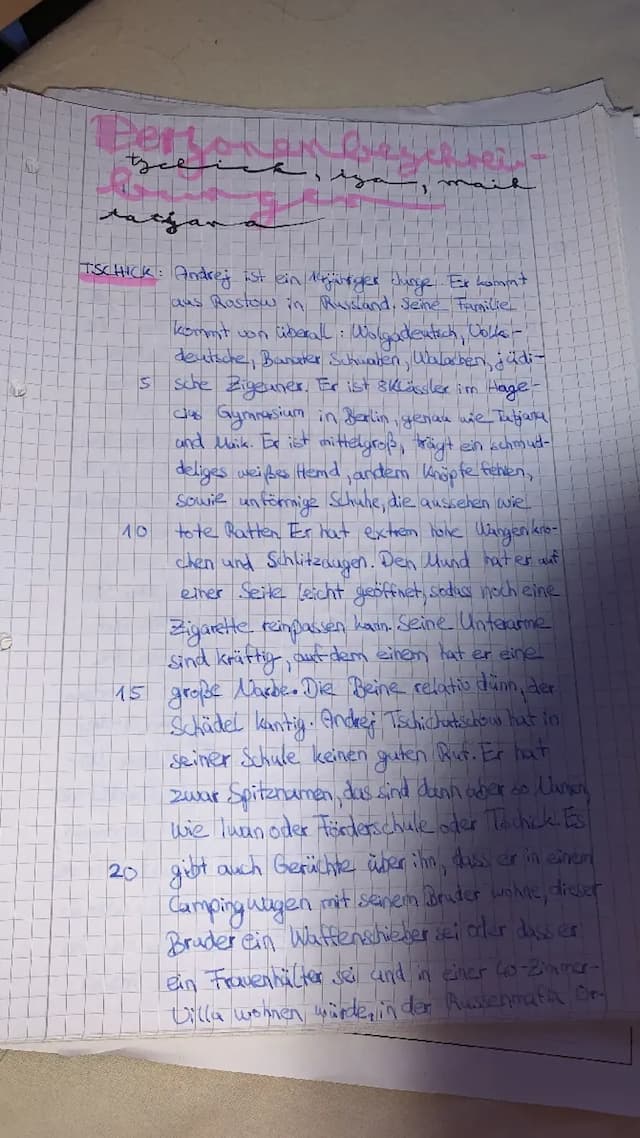 Personenbeschrei-
tschick, isa, maik
bungen
tatjana
TSCHICK: Andrej ist ein 14jähriger Junge. Er kommt
aus Rostow in Russland. Seine Familie
kommt von überall: Wolgadeutsch, Volks-
deutsche, Banater Schwaben, Walachen, jüdi-
5 sche Zigeuner. Er ist 8Klässler im Hage-
cius Gymnasium in Berlin, genau wie Tatjana
und Maik. Er ist mittelgroß, trägt ein schmud-
deliges weißes Hemd, andem Knöpfe fehlen,
sowie unförmige Schuhe, die aussehen wie
10 tote Ratten. Er hat extrem hohe Wangenkno-
chen und Schlitzaugen. Den Mund hat er auf
einer Seite leicht geöffnet, sodass noch eine
Zigarette reinpassen kann. Seine Unterarme
sind kräftig, auf dem einem hat er eine
15 große Narbe. Die Beine relativ dünn, der
Schädel kantig. Andrej Tschichatschow hat in
seiner Schule keinen guten Ruf. Er hat
zwar Spitznamen, das sind dann aber so Namen,
wie Iwan oder Förderschule oder Tschick. Es
20 gibt auch Gerüchte über ihn, dass er in einem
Campingwagen mit seinem Bruder wohne, dieser
Bruder ein Waffenschieber sei oder dass er
ein Frauenhälter sei und in einer 40-Zimmer-
Villa wohnen würde, in der Russenmafia Or-